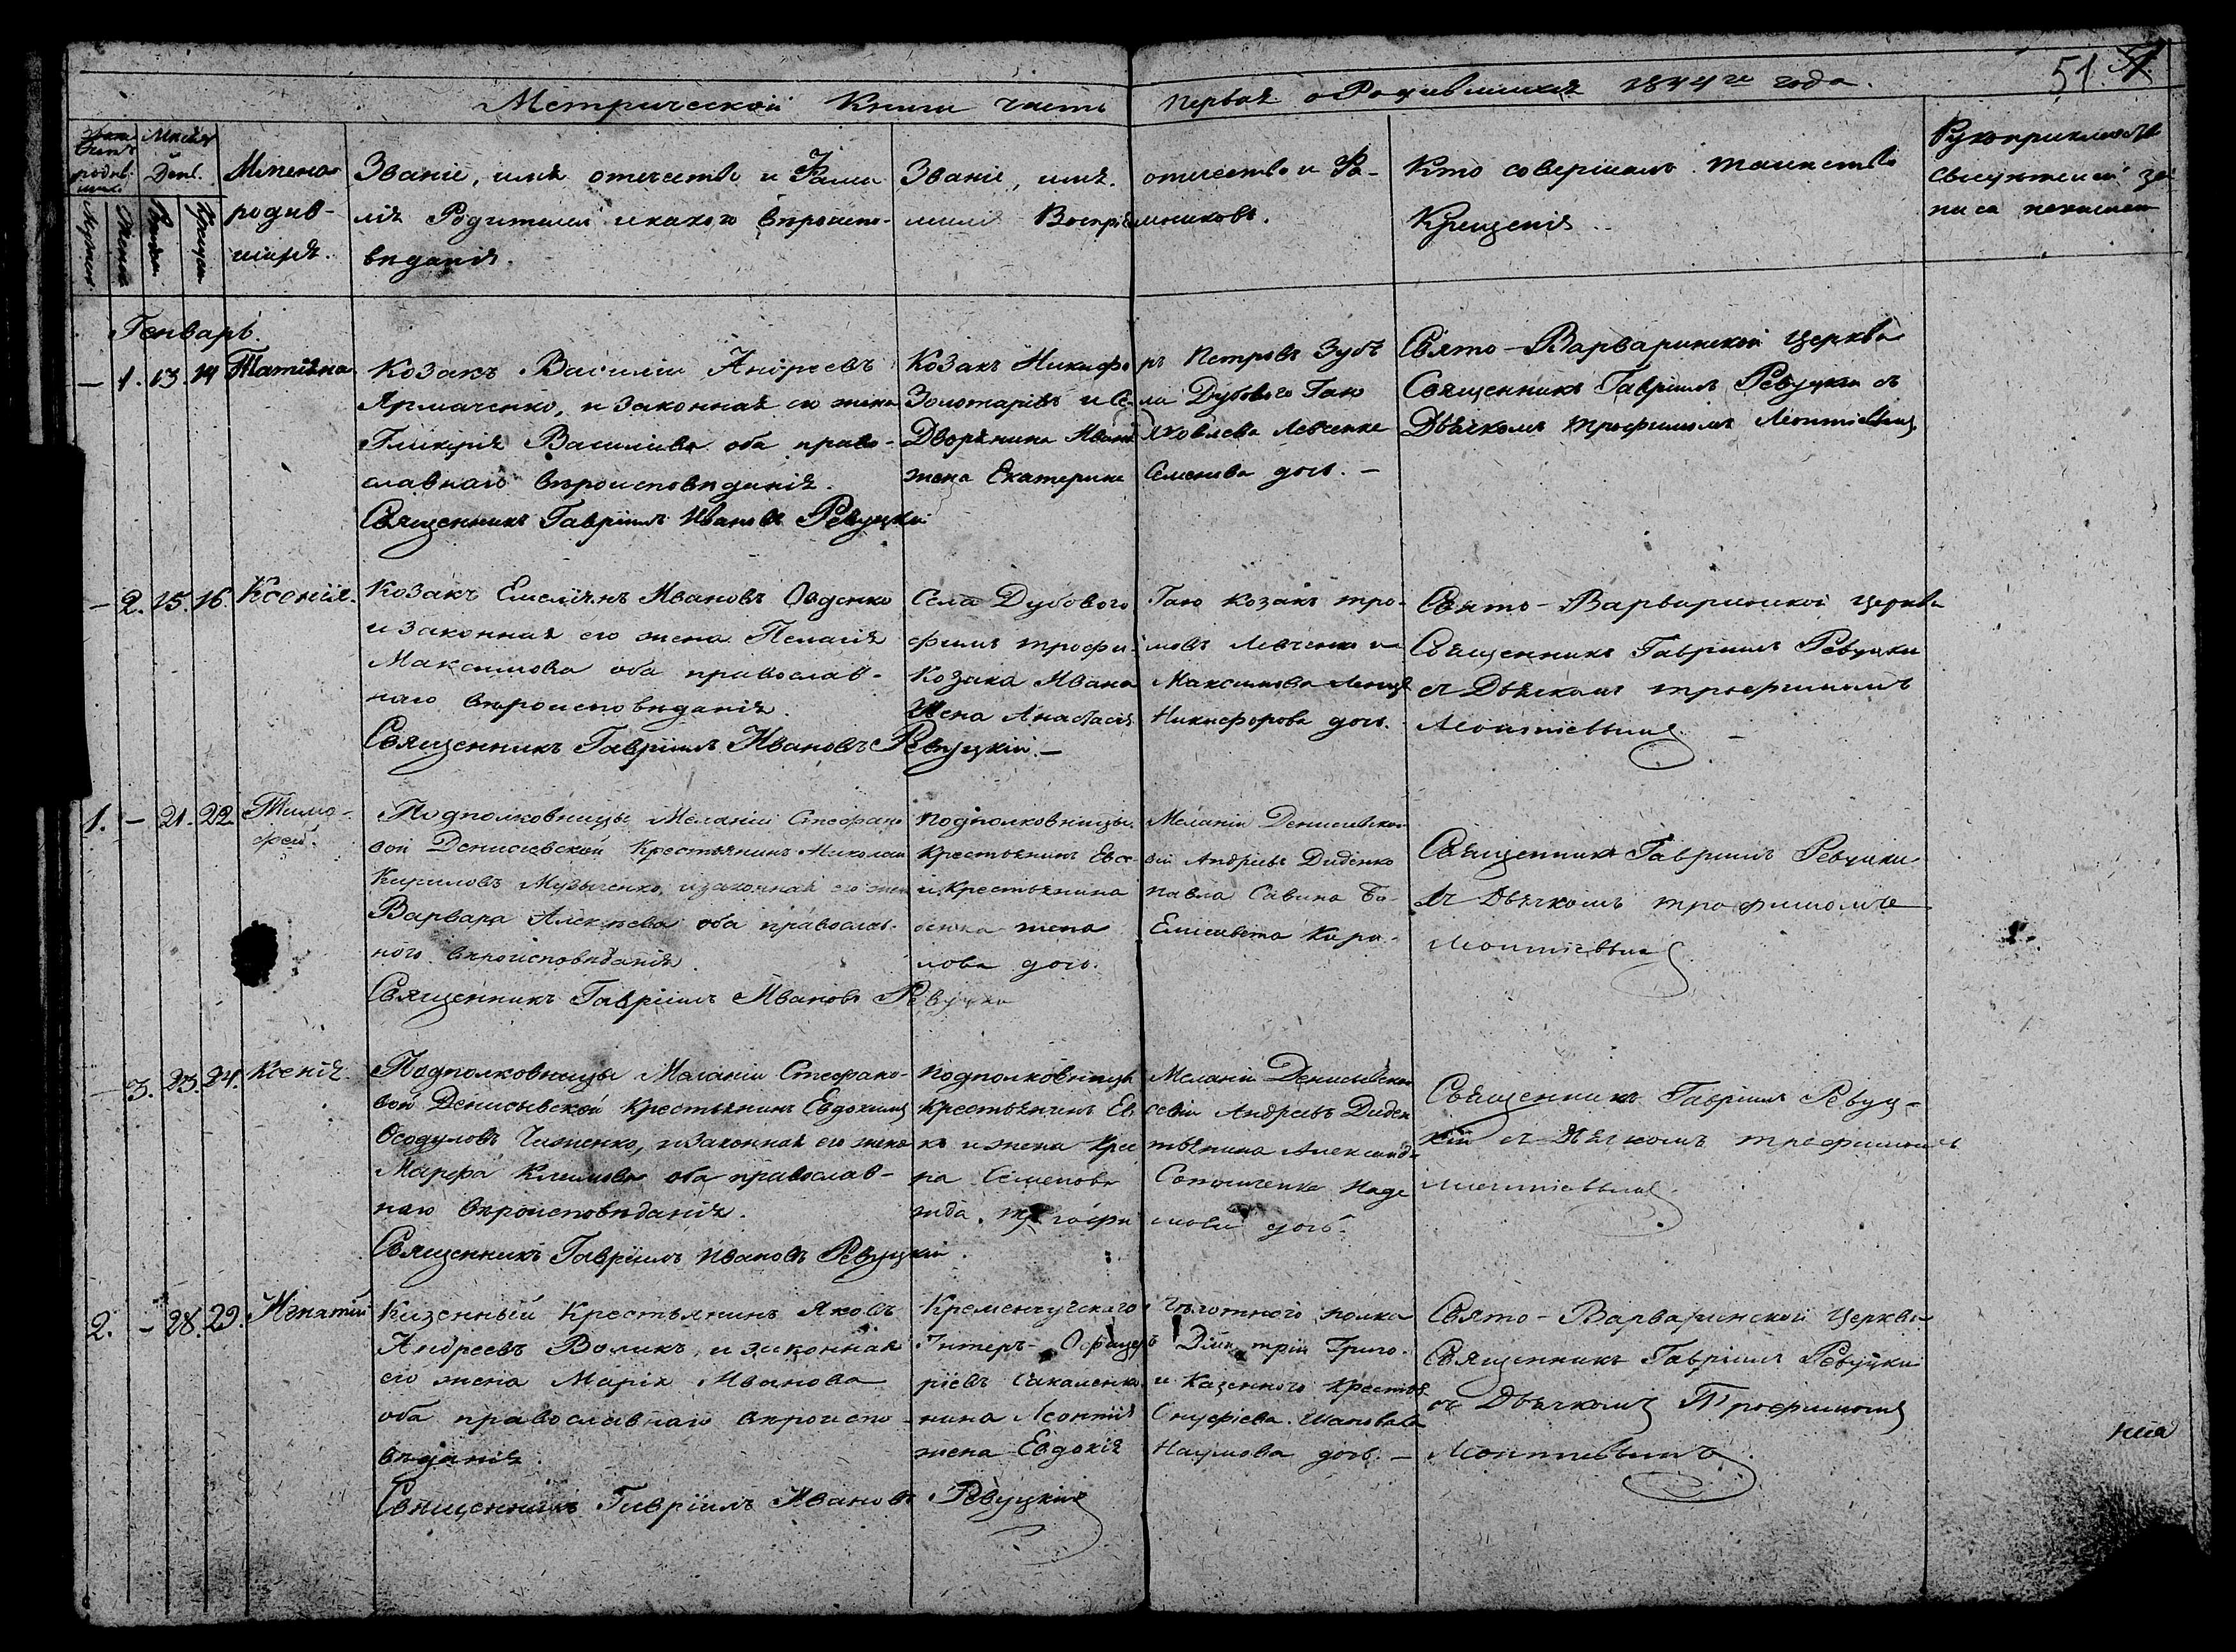 51.
Метрической Книги часть первая о Родившихся 1844го года.
Мѣсяцъ
День.
Имена родив-
шихъ.
Званіе, имя отечество и Фами-
лія Родителей и какого вѣроиспо-
вѣданія.
Званіе, имя. отечество и Фа-
милія Воспріемниковъ.
Кто совершалъ таинство
Крещенія
Рукоприкладство
свидѣтелей за-
писи
Генварь.
— 1. 13. 14 Татіяна
Козакъ Василій Андреевъ
Ярмаченко, и законная его жена
Гликерія Василіева оба право-
славнаго вѣроисповѣданія.
Священникъ Гавріилъ Ивановъ Ревуцкій
Козакъ Никифоръ Петровъ Зубъ
Золотаривъ и Села Дубового Гаю
Дворянина Ивана Яковлева Левченка
жена Екатерина Семенова дочь. —
Свято-Варваринской Церкви
Священникъ Гавріилъ Ревуцкій съ
Дьячкомъ Трофимомъ Леонтіевымъ
— 2. 15. 16. Ксенія.
Козакъ Емеліянъ Ивановъ Овденко
и законная его жена Пелагія
Максимова оба православ-
наго вѣроисповѣданія.
Священникъ Гавріилъ Ивановъ Ревуцкій. —
Села Дубового Гаю козакъ Тро-
фимъ Трофимовъ Левченко и
Козака Ивана Максимова
Жена Анастасія Никифорова дочь.
Свято-Варваринской Церкви
Священникъ Гавріилъ Ревуцкій
съ Дьячкомъ Трофимомъ
Леонтіевымъ —
1. — 21. 22 Тимо-
фей.
Подполковницы Меланіи Стефано-
вой Денисевской Крестьянинъ Николай
Кириловъ Музыченко, и законная его жена
Варвара Алексѣева оба православ-
ного вѣроисповѣданія.
Священникъ Гавріилъ Ивановъ Ревуцкій
Подполковницы Меланіи Денисевской
Крестьянинъ Евсевій Андреевъ Диденко
и Крестьянина Павла Савина
жена Елисавета Кири-
лова дочь.
Священникъ Гавріилъ Ревуцкій
съ Дьячкомъ Трофимомъ
Леонтіевымъ
— 3. 23. 24. Ксенія
Подполковницы Меланіи Стефано-
вой Денисьевской Крестьянинъ Евдокимъ
Феодуловъ и законная его жена
Марфа Климова оба православ-
наго вѣроисповѣданія.
Священникъ Гавріилъ Ивановъ Ревуцкій.
Подполковницы Меланіи Денисьевской
Крестьянинъ Евсевій Андреевъ Диден-
ко и жена Крестьянина Александ-
ра Семенова Наде-
жда Трофимова дочь.
Священникъ Гавріилъ Ревуц-
кій съ Дьячкомъ Трофимомъ
Леонтіевымъ
2. — 28. 29. Игнатій
Казенный Крестьянинъ Яковъ
Андреевъ Воликъ, и законная
его жена Марія Иванова
оба православнаго вѣроиспо-
вѣданія.
Священникъ Гавріилъ Ивановъ Ревуцкій
Кременчугскаго Пѣхотного полка
Унтеръ-Офицеръ Димитрій Григо-
ріевъ Сакаленко. и Казенного Крестья-
нина Леонтія Онуфріева Шаповала
жена Евдокія Наумова дочь. —
Свято-Варваринской Церкви
Священникъ Гавріилъ Ревуцкій
съ Дьячкомъ Трофимомъ
Леонтіевымъ